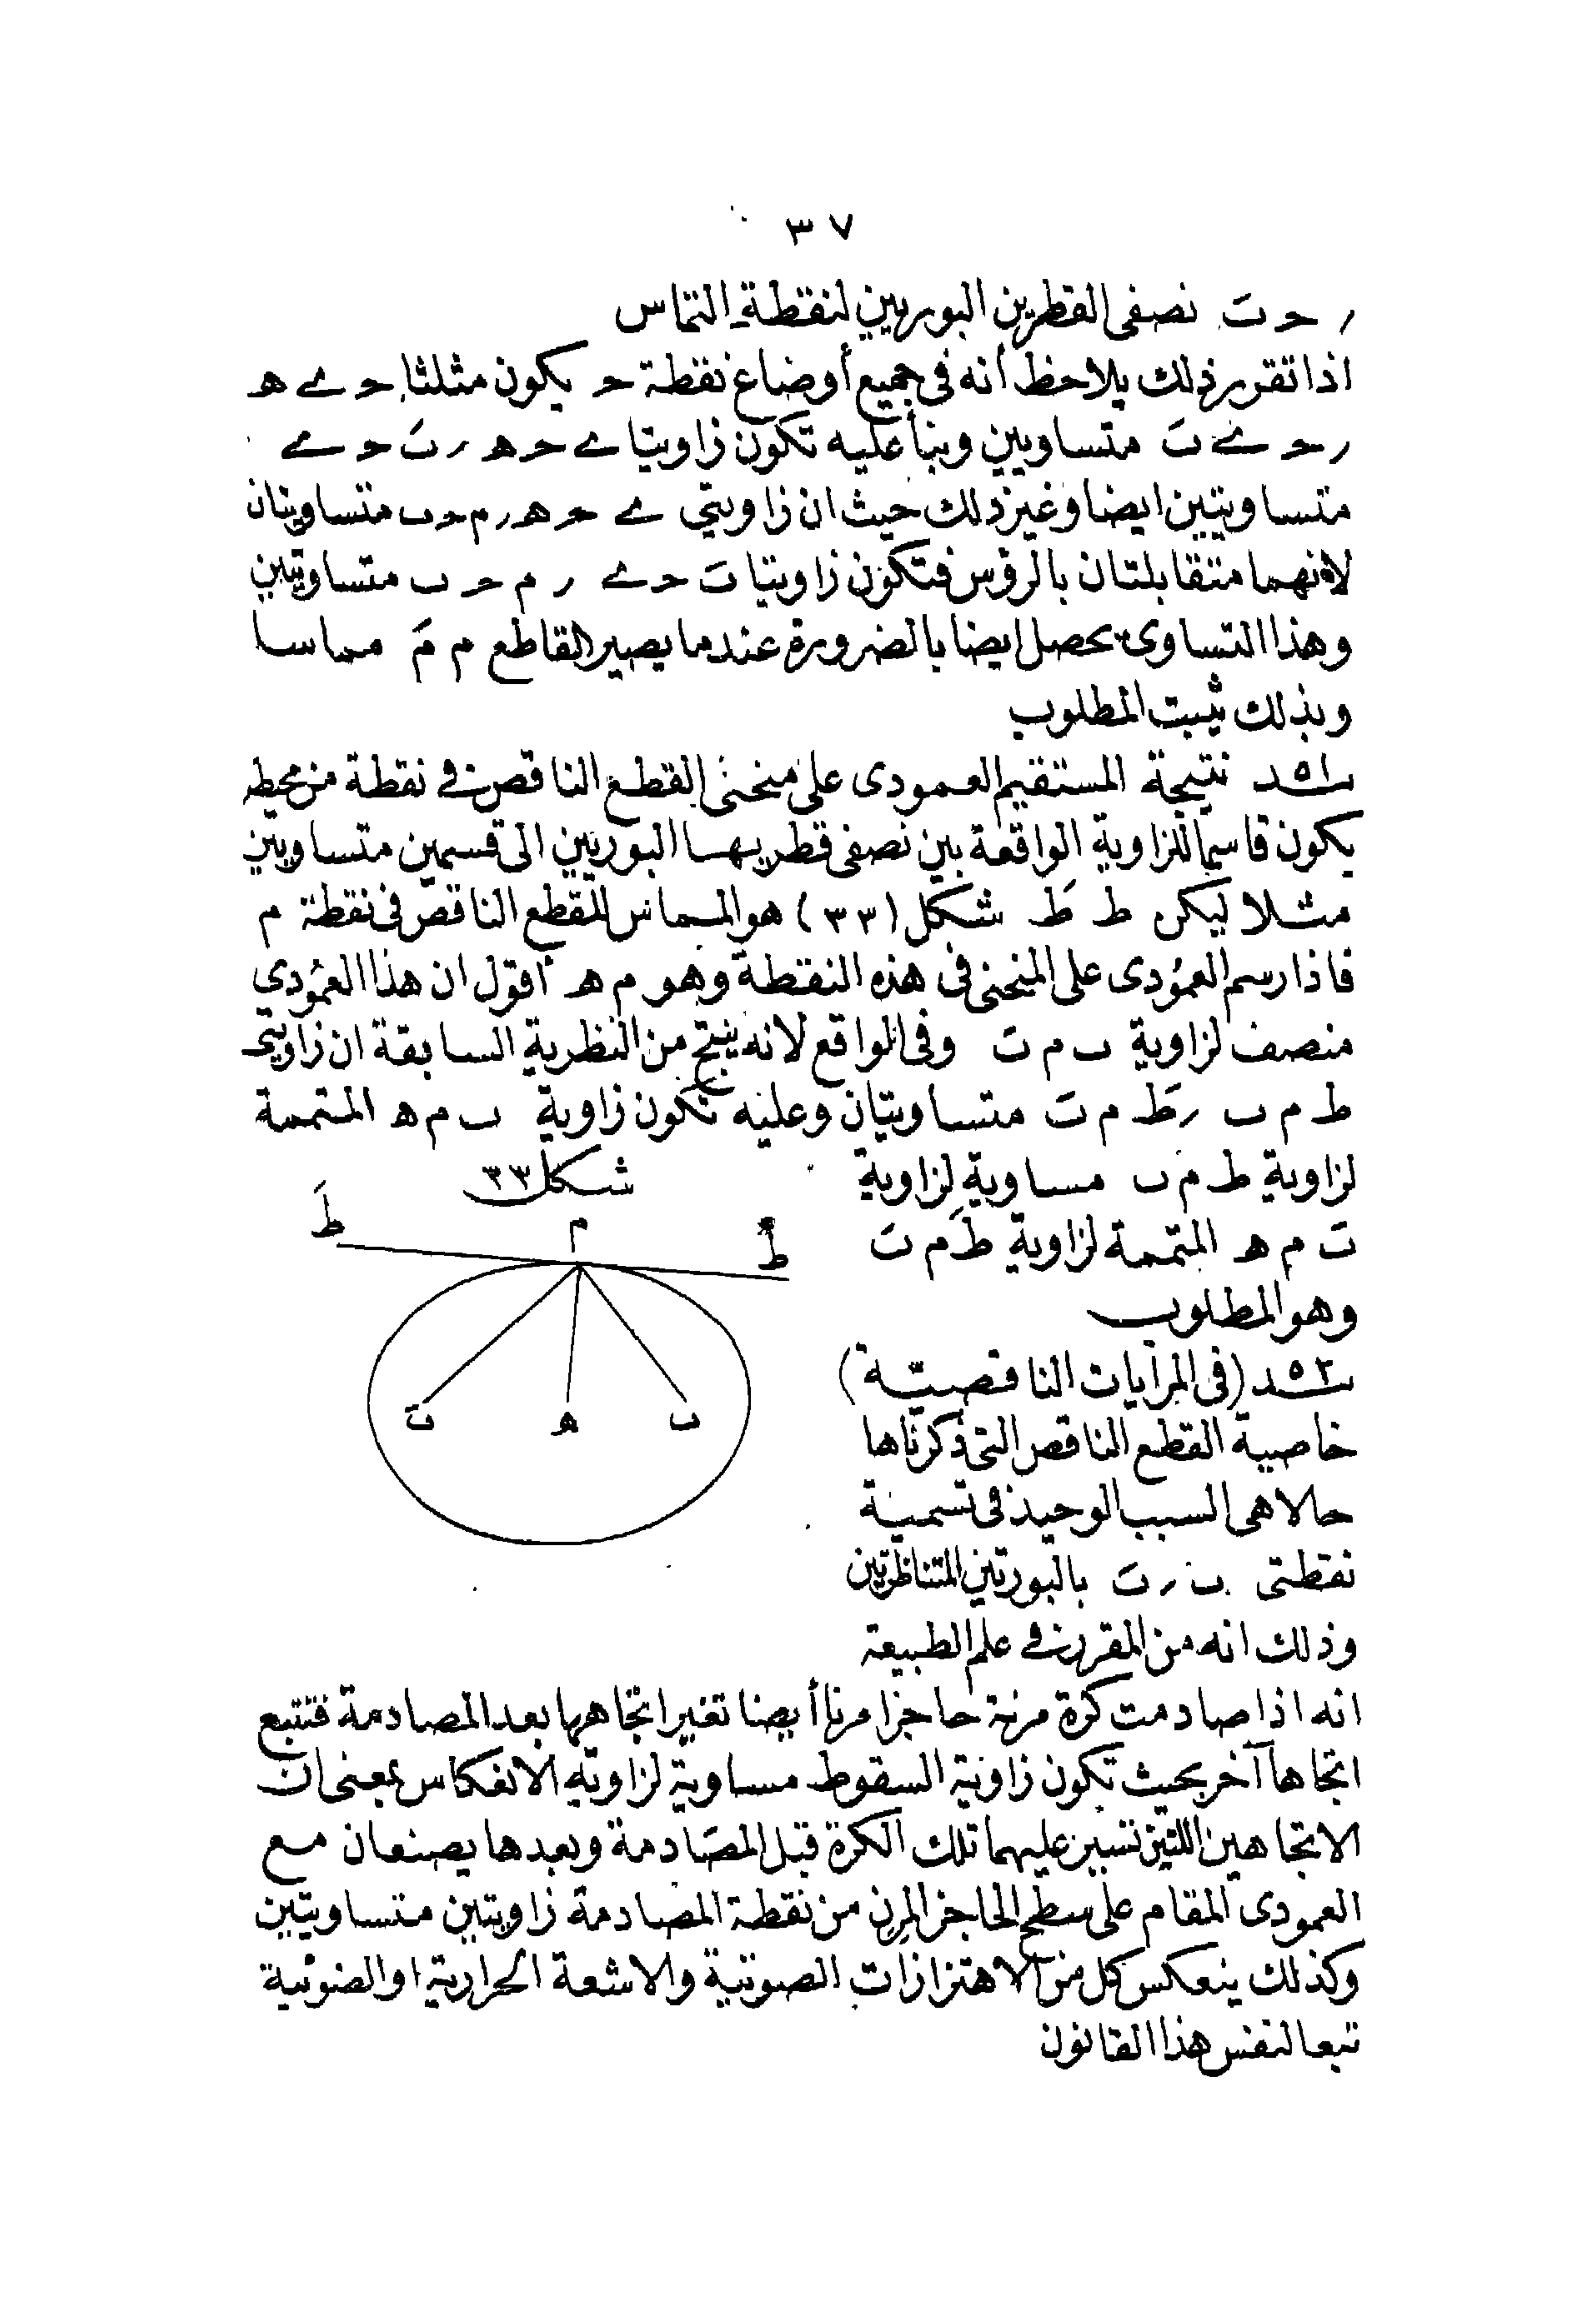 ٣٧
ر حـ بَ نصفى القطرين البوريين لنقطة التماس
اذا تقرر ذلك يلاحظ أنه فى جميع أوضاع نقطة حـ يكون مثلثا حـ ے هـ
ر حـ ے بَ متساويين وبنأ عليه تكون زاويتا ے حـ هـ ر بَ حـ ے
متساويتين ايضا وغير ذلك حيث ان زاويتي ے حـ هـ ر م حـ ب متساويتان
لانهما متقابلتان بالرؤس فتكون زاويتا بَ حـ ے ر م حـ ب متساويتين
وهذا التساوى يحصل ايضا بالضرورة عندما يصير القاطع م مَ مماسا
وبذلك ثبت المطلوب
٥١ــد نتيجة المستقيم العمودى على منحنى القطع الناقص فى نقطة من محيطه
يكون قاسما للزاوية الواقعة بين نصفى قطريها البوريين الى قسمين متساويين
مثلا ليكن ط طَ شكل (٣٣) هو المماس للقطع الناقص فى نقطة م
فاذا رسم العمودى على المنحنى فى هذه النقطة وهو م هـ أقول ان هذا العمودي
منصف لزاوية ب م بَ وفى الواقع لانه ينتج من النظرية السابقة ان زاويتى
ط م ب ر طَ م بَ متساويتان وعليه تكون زاوية ب م هـ المتممة
لزاوية ط م ب مساوية لزاوية
بَ م هـ المتممة لزاوية طَ م بَ
وهو المطلوب
شكل ٣٣
طَ
م
ط
بَ
هـ
ب
٥٢ــد (فى المرايات الناقصية)
خاصية القطع الناقص التى ذكرناها
حالا هى السبب الوحيد فى تسمية
نقطتى ب ر بَ بالبورتين المتناظرتين
وذلك انه من المقرر فى علم الطبيعة
انه اذا صادمت كرة مرنة حاجزا مرنا أيضا تغير اتجاهها بعد المصادمة فتتبع
اتجاها آخر بحيث تكون زاوية السقوط مساوية لزاوية الانعكاس بمعنى ان
الاتجاهين اللذين تسير عليهما تلك الكرة قبل المصادمة وبعدها يصنعان مع
العمودى المقام على سطح الحاجز المرن من نقطة المصادمة زاويتين متساويتين
وكذلك ينعكس كل من الاهتزازات الصوتية والاشعة الحرارية او الضوئية
تبعا لنفس هذا القانون